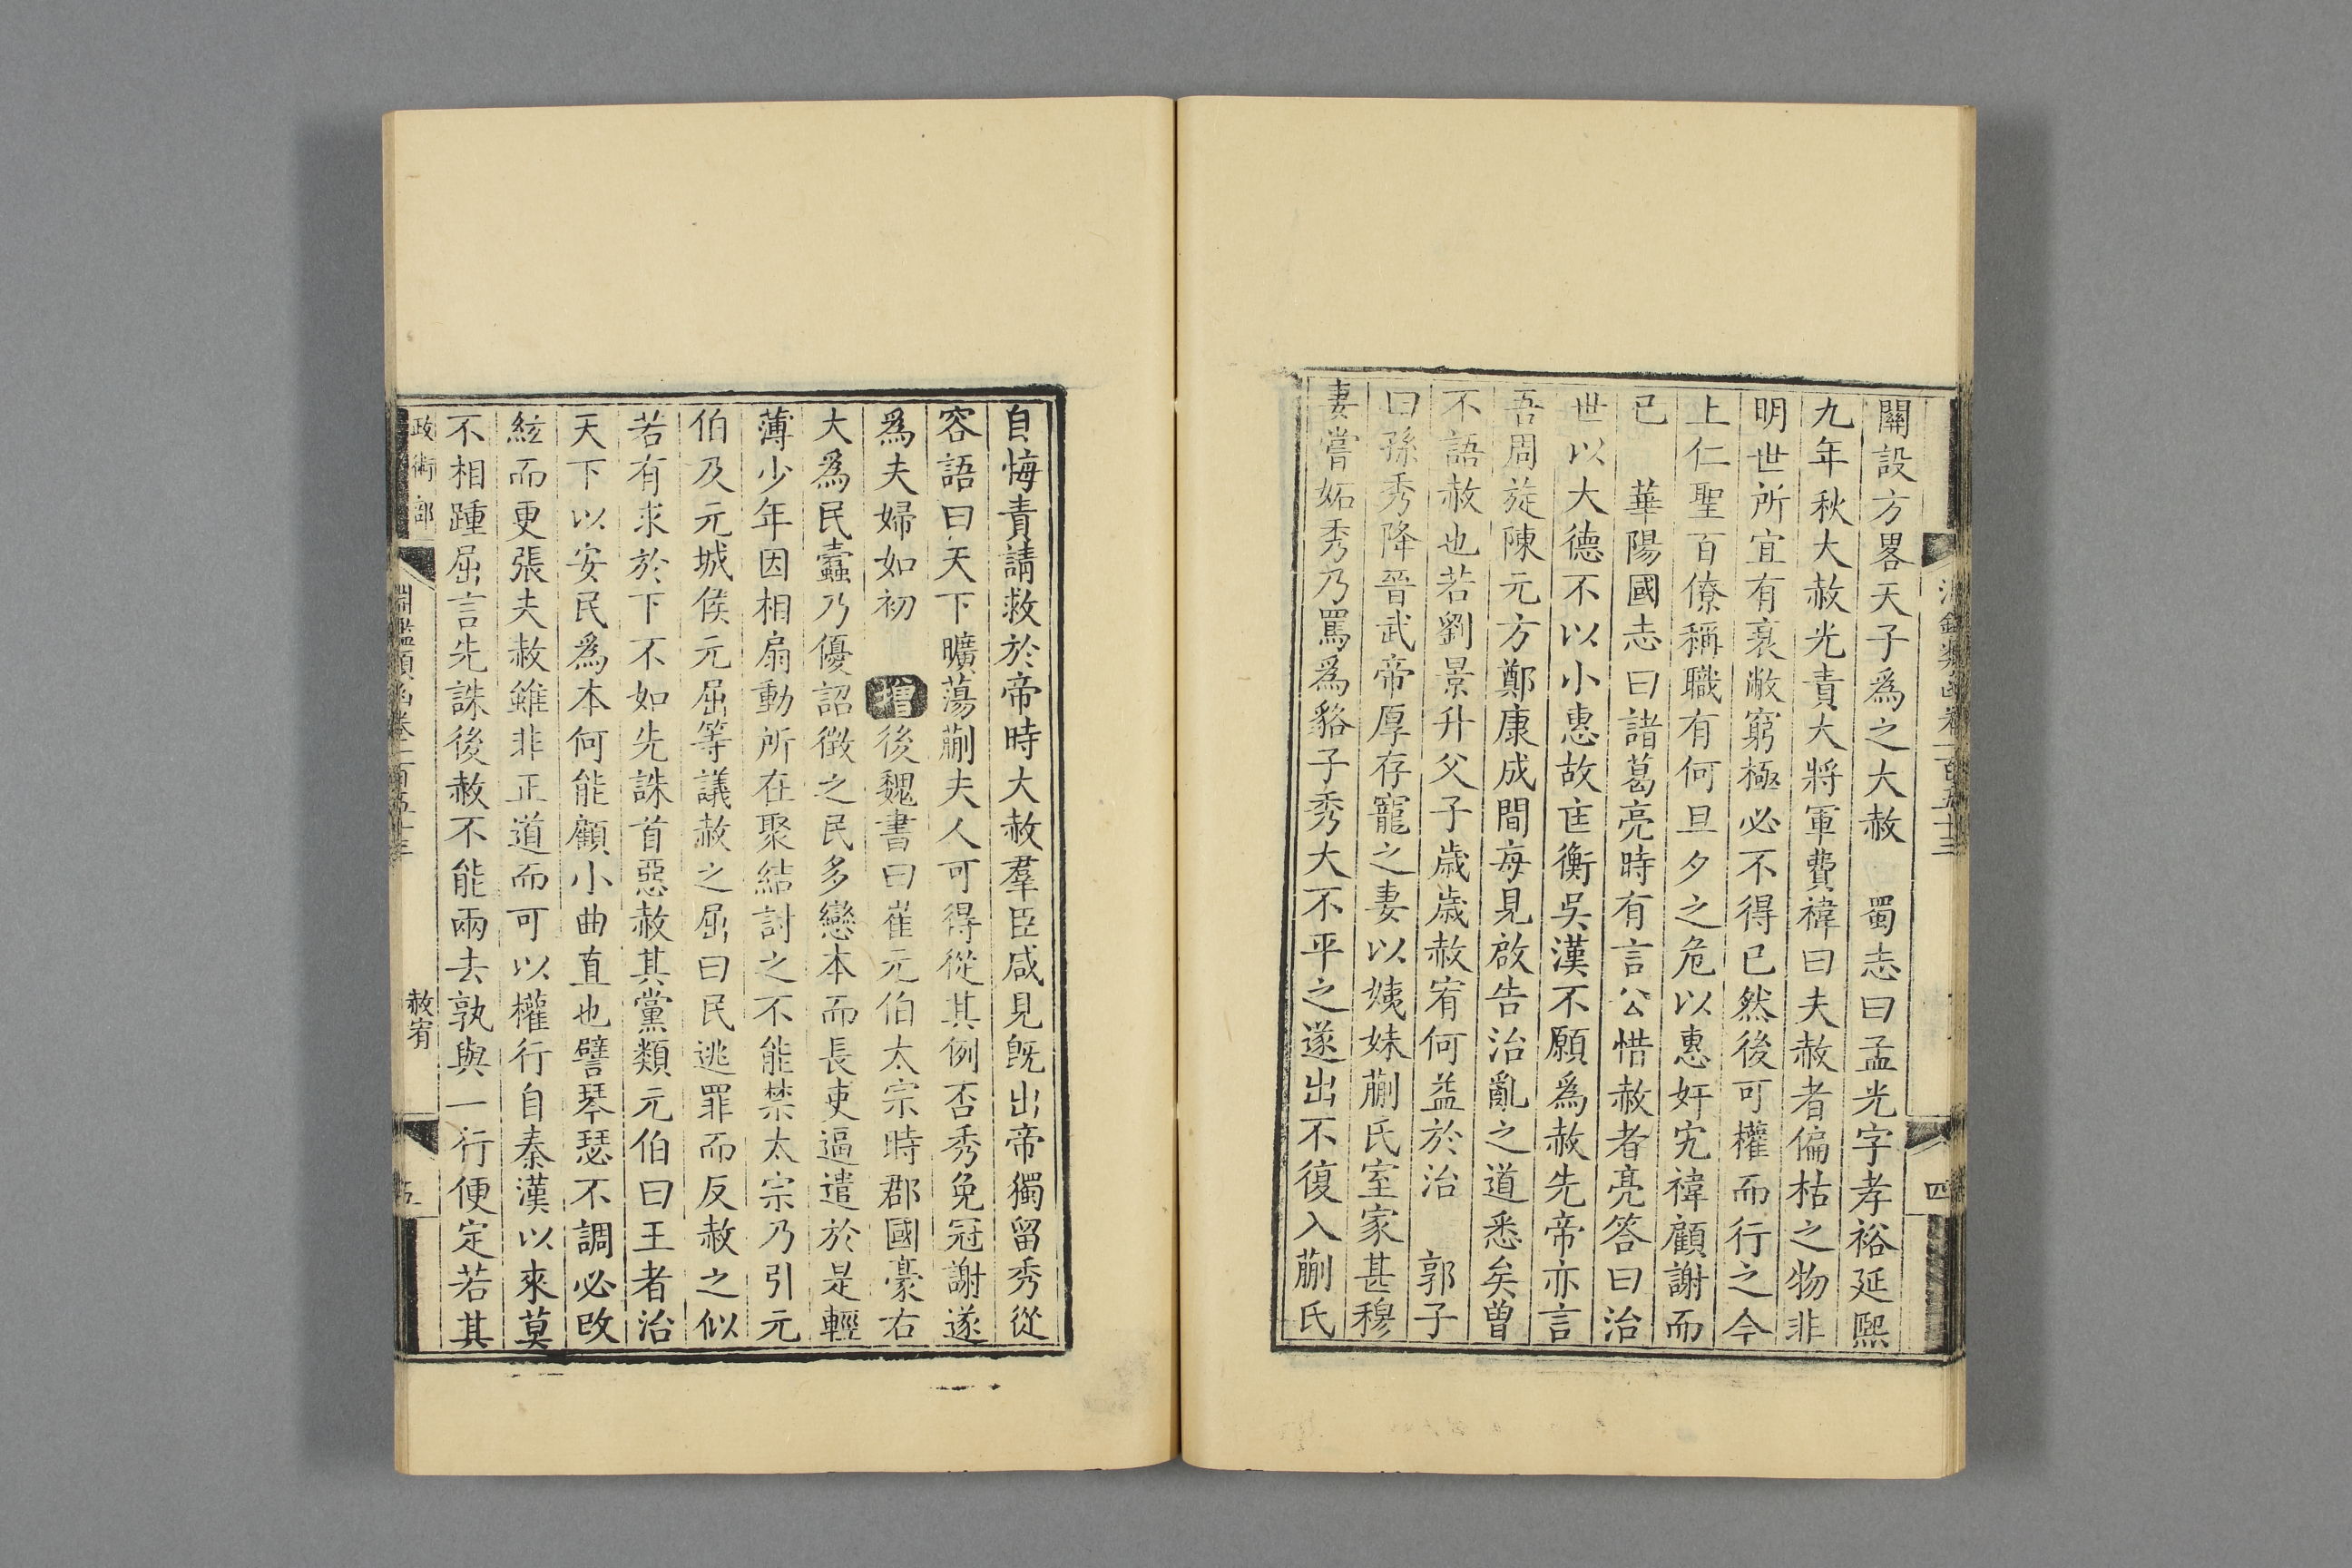 關設方畧天子爲之大赦　蜀志曰孟光字孝裕延熙
九年秋大赦光責大將軍費禕曰夫赦者偏枯之物非
明世所宜有衰敝窮極必不得已然後可權而行之今
上仁聖百僚稱職有何旦夕之危以惠奸宄禕顧謝而
已　華陽國志曰諸葛亮時有言公惜赦者亮答曰治
世以大德不以小惠故匡衡吳漢不願爲赦先帝亦言
吾周旋陳元方鄭康成間每見啟告治亂之道悉矣曾
不語赦也若劉景升父子歲歲赦宥何益於治　郭子
曰孫秀降晉武帝厚存寵之妻以姨妹蒯氏室家甚穆
妻嘗妬秀乃罵爲貉子秀大不平之遂出不復入蒯氏
四
自悔責請救於帝時大赦羣臣咸見旣出帝獨留秀從
容語曰天下曠蕩蒯夫人可得從其例否秀免冠謝遂
爲夫婦如初　增後魏書曰崔元伯太宗時郡國豪右
大爲民蠹乃優詔徵之民多戀本而長吏逼遣於是輕
薄少年因相扇動所在聚結討之不能禁太宗乃引元
伯及元城侯元屈等議赦之屈曰民逃罪而反赦之似
若有求於下不如先誅首惡赦其黨類元伯曰王者治
天下以安民爲本何能顧小曲直也譬琴瑟不調必改
絃而更張夫赦雖非正道而可以權行自秦漢以來莫
不相踵屈言先誅後赦不能兩去孰與一行便定若其
政術部
淵鑑類函卷一百五十三
赦宥
五